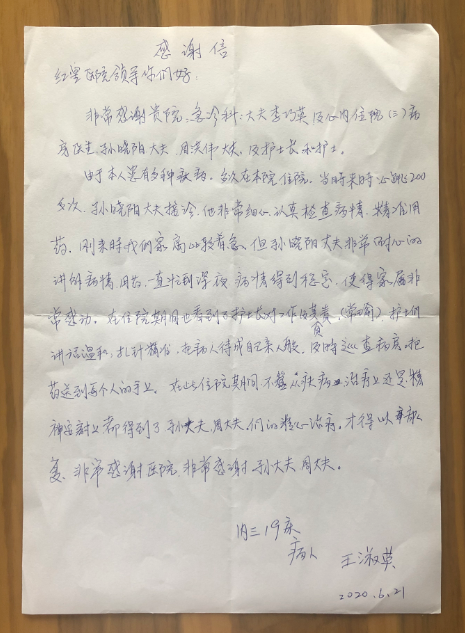 感谢信
红星医院领导你们好:
非常感谢贵院、急诊科:大夫李巧英及心内住院(三)病
房医生,孙晓阳大夫 周洪伟大夫,及护士长和护士。
由于本人患有多种疾病,多次在本院住院,当时来时心跳200
多次,孙晓阳大夫接诊,他非常细心,认真检查病情,精准用
药,刚来时我们家属比较着急,但孙晓阳大夫非常耐心的
讲解病情用药,一直忙到深夜 病情得到稳定,使得家属非
常感动。在住院期间也看到了护士长对工作的负责,(常瑜),护士们
讲话温和,扎针精准,把病人待成自己亲人般,及时巡查病房,把
药送到每个人的手上。在此住院期间不管从疾病上治病上还是精
神安慰上都得到了孙大夫,周大夫,们的精心治病。才得以康
复,非常感谢医院 非常感谢 孙大夫 周大夫。
内三19床
病人 王淑英
2020.6.21